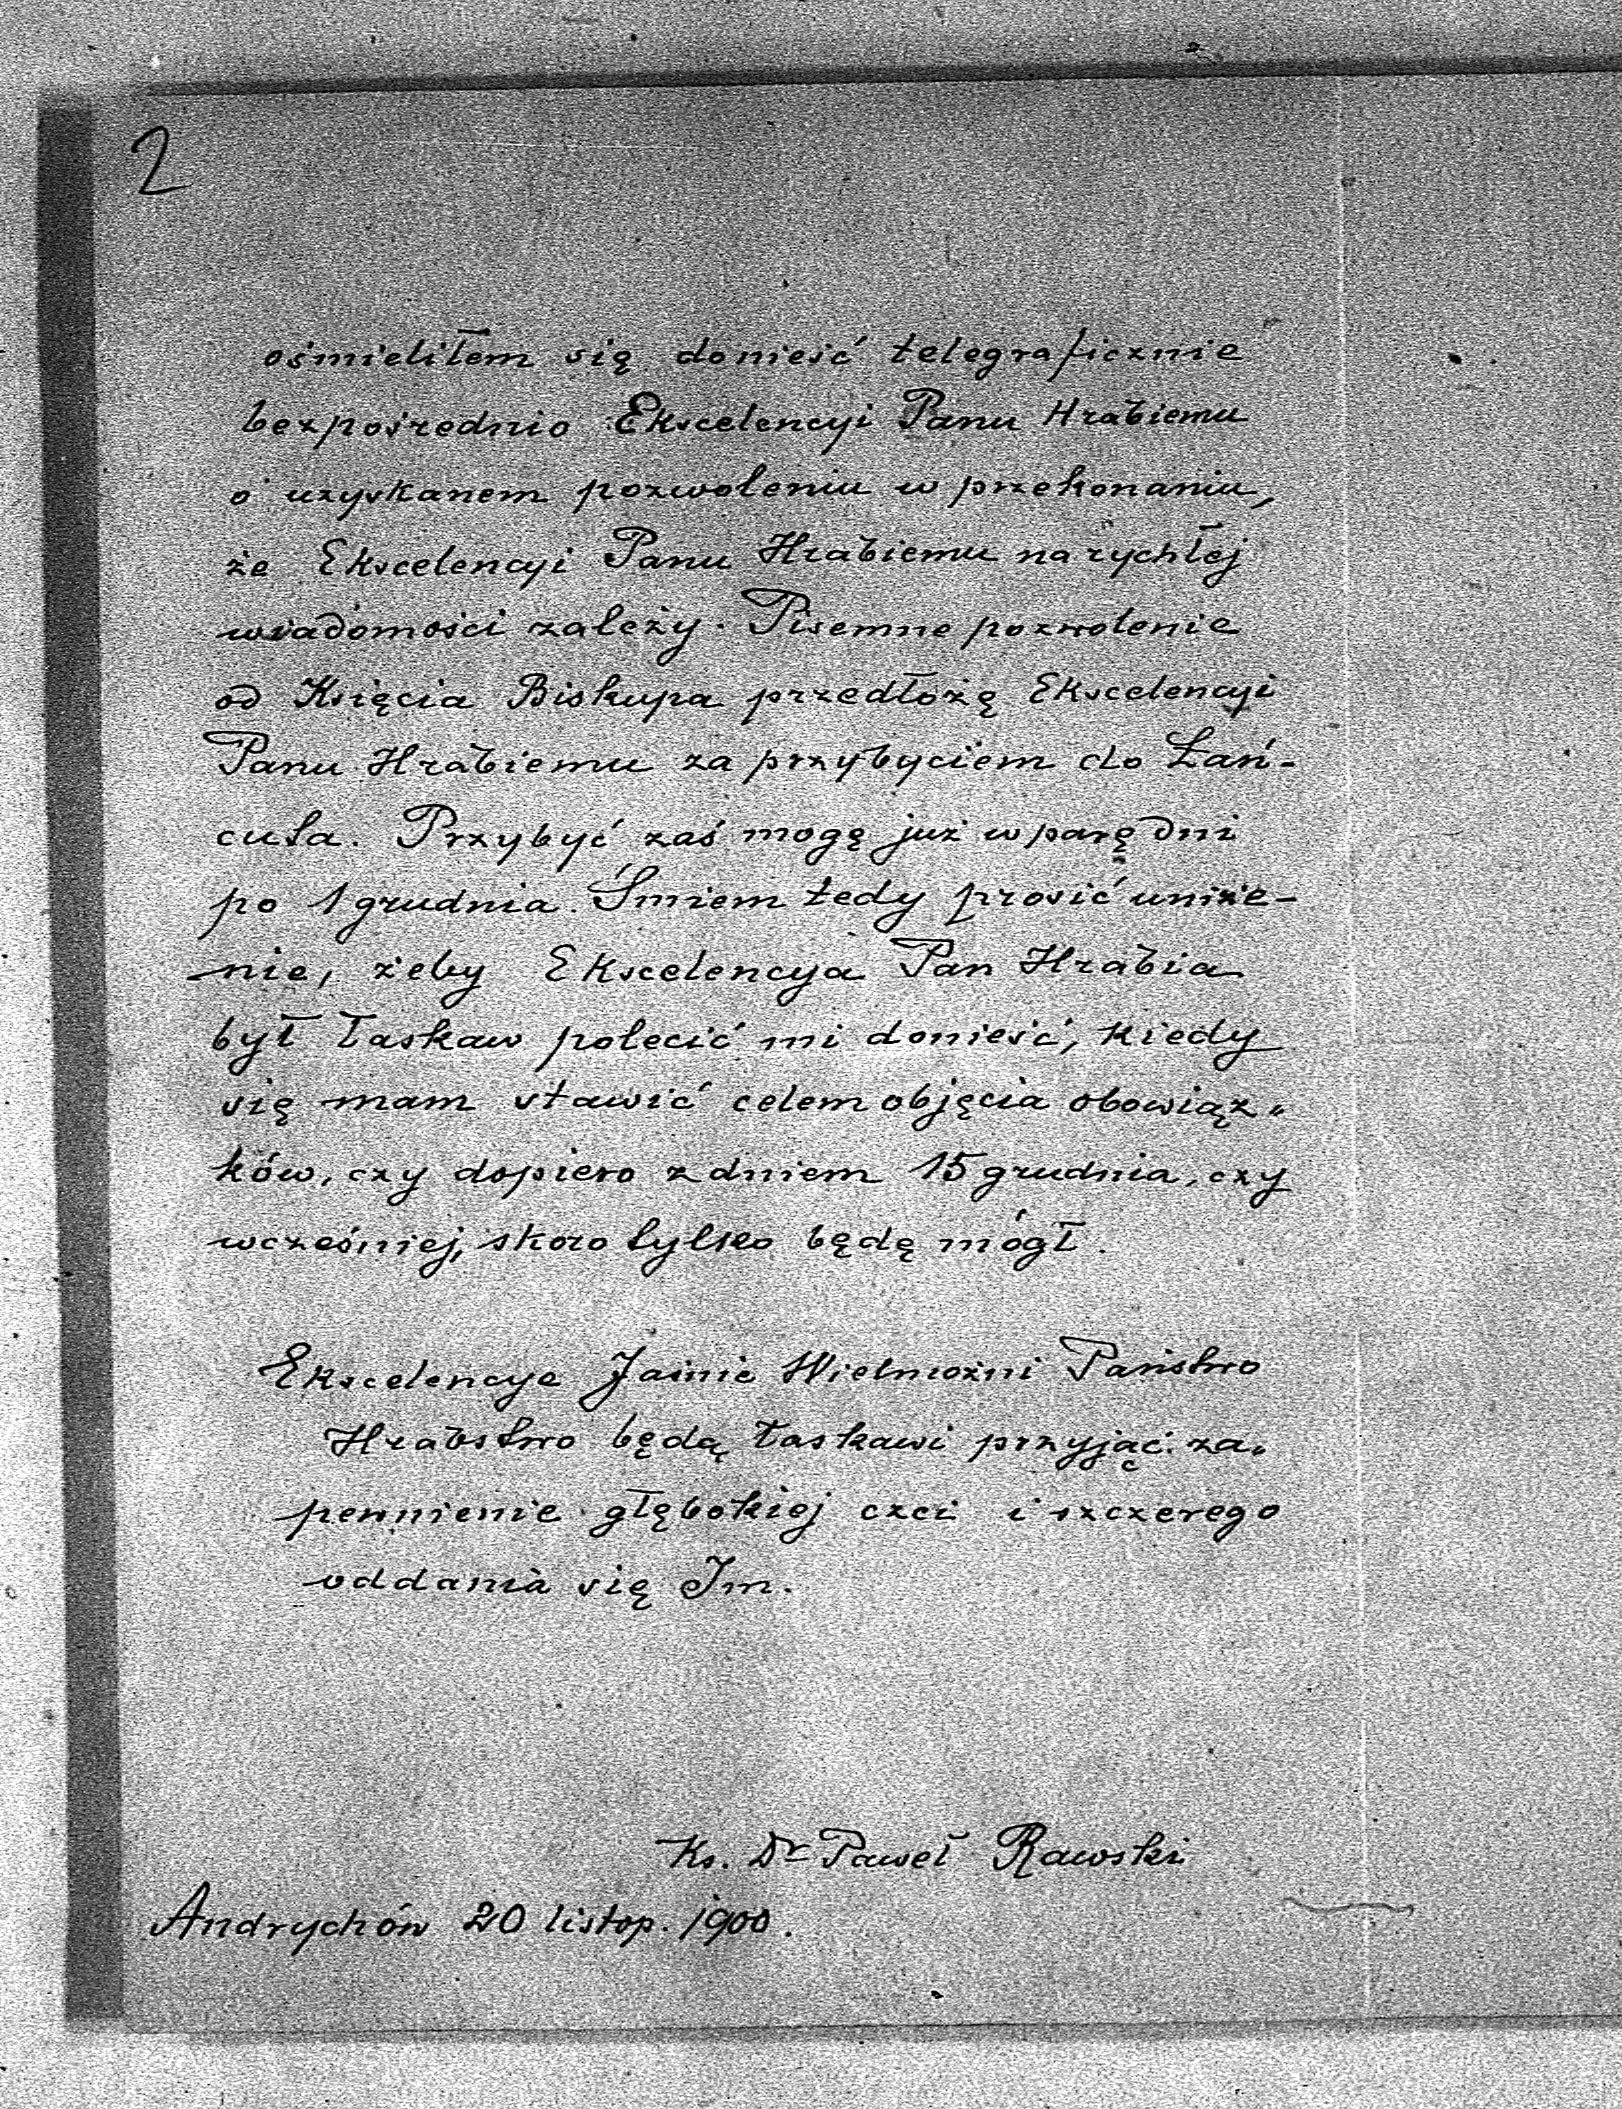 2
ośmieliłem się donieść telegraficznie
bezpośrednio Ekscelencyi Panu Hrabiemu
o uzyskanem pozwoleniu w przekonaniu,
że Ekscelencyi Panu Hrabiemu na rychłej
wiadomości zależy. Pisemne pozwolenie
od Księcia Biskupa przedłożę Ekscelencyi
Panu Hrabiemu za przybyciem do Łań-
cuta. Przybyć zaś mogę już w parę dni
po 1 grudnia. Śmiem tedy prosić uniże-
nie, żeby Ekscelencya Pan Hrabia
był łaskaw polecić mi donieść, kiedy
się mam stawić celem objęcia obowiąz„
ków, czy dopiero z dniem 15 grudnia, czy
wcześniej, skoro tylko będę mógł.
Ekscelencye Jaśnie Wielmożni Państwo
Hrabstwo będą łaskawi przyjąć za„
pewnienie głębokiej czci i szczerego
oddania się Im.
Ks. Dr Paweł Rawski
Andrychów 20 listop. 1900.